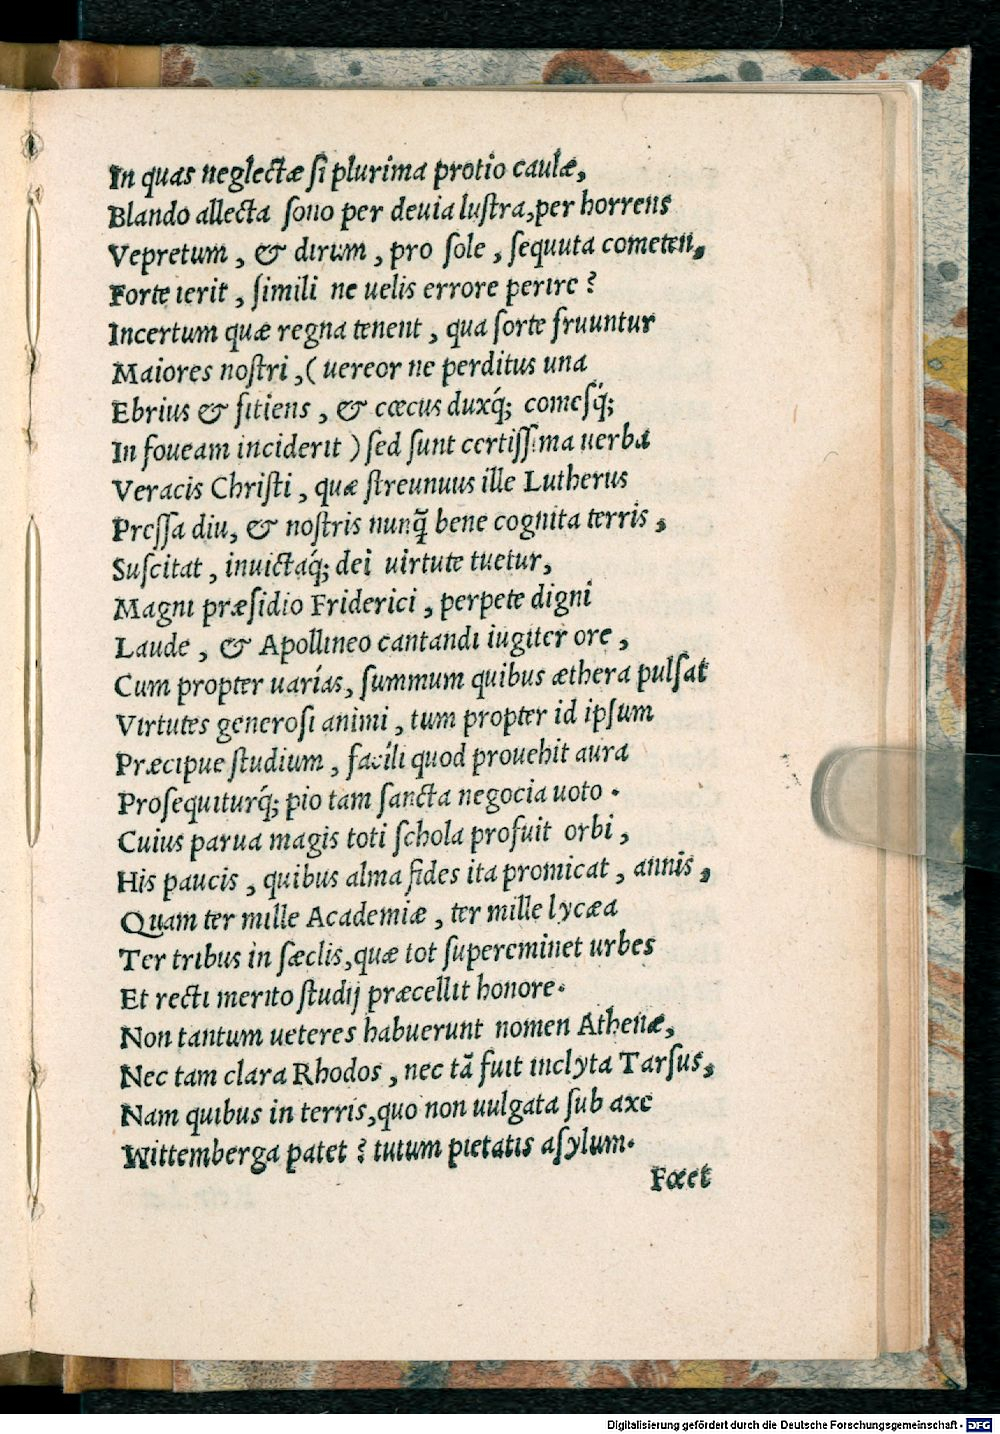 In quas neglectæ ſi plurima protio caulæ,
Blando allecta ſono per deuia luſtra,per horrens
Vepretum, & dirum, pro ſole, ſequuta cometen,
Forte ierit, ſimili ne uelis errore perire?
Incertum quæ regna tenent, qua ſorte fruuntur
Maiores noſtri,( uereor ne perditus una
Ebrius & ſitiens, & cœcus duxq́; comeſq́;
In foueam inciderit ) ſed ſunt certiſſima uerba
Veracis Chriſti, quæ ſtreunuus ille Lutherus
Preſſa diu, & noſtris nunq̃ bene cognita terris,
Suſcitat, inuictaq́; dei uirtute tuetur,
Magni præſidio Friderici, perpete digni
Laude, & Apollineo cantandi iugiter ore,
Cum propter uarías, ſummum quibus æthera pulſat
Virtutes generoſi animi, tum propter id ipſum
Præcipue ſtudium, facili quod prouehit aura
Proſequiturq́; pio tam ſancta negocia uoto.
Cuius parua magis toti ſchola profuit orbi,
His paucis, quibus alma fides ita promicat, annis,
Quam ter mille Academiæ, ter mille lycæa
Ter tribus in ſæclis,quæ tot ſupereminet urbes
Et recti merito ſtudij præcellit honore.
Non tantum ueteres habuerunt nomen Athenæ,
Nec tam clara Rhodos, nec tã fuit inclyta Tarſus,
Nam quibus in terris,quo non uulgata ſub axe
Wittemberga patet? tutum pietatis aſylum.
Fœet
Digitalisierung gefördert durch die Deutsche Forschungsgemeinschaft - DFG